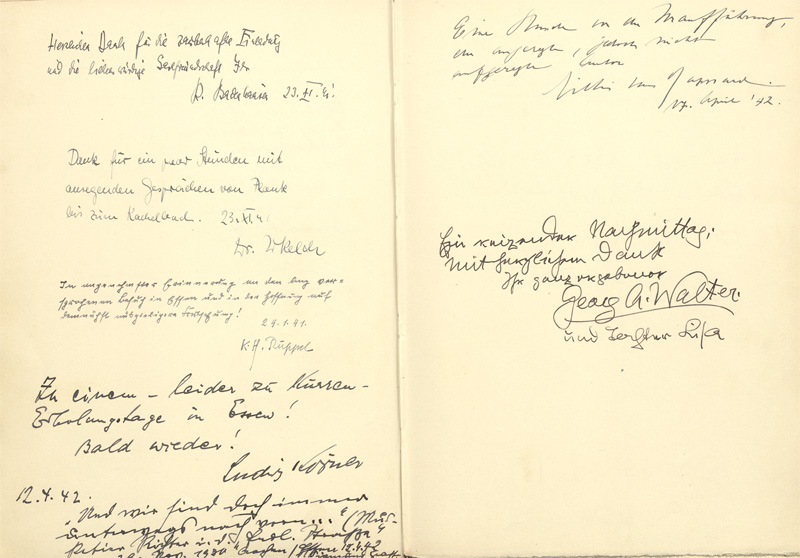 Herzlichen Dank für die zauberhafte Einladung
und die liebenswürdige Gastfreundschaft Ihr
23. XI. 41.
Dank für ein paar Stunden mit
anregenden Gesprächen von Plank
bis zum Kachelbad. 23. XI 41
Dr.
In angenehmster Erinnerung an den lang ver-
sprochenen Besuch in Essen und in der Hoffnung auf
demnächst
29.1.41.
K. H. Ruppel
Zu einem – leider zu kurzen –
Erholungstage in Essen!
Bald wieder!
Ludwig Körner
12.4.42.
"Und wir sind doch immer
unterwegs nach vorn..."
Eine Stunde vor der Uraufführung,
ein angeregter, jedoch nicht
aufgeregter Autor
17. April '42.
Ein reizender Nachmittag;
Mit herzlichem Dank
Ihr ganz ergebener
Georg A. Walter.
und Tochter Lisa